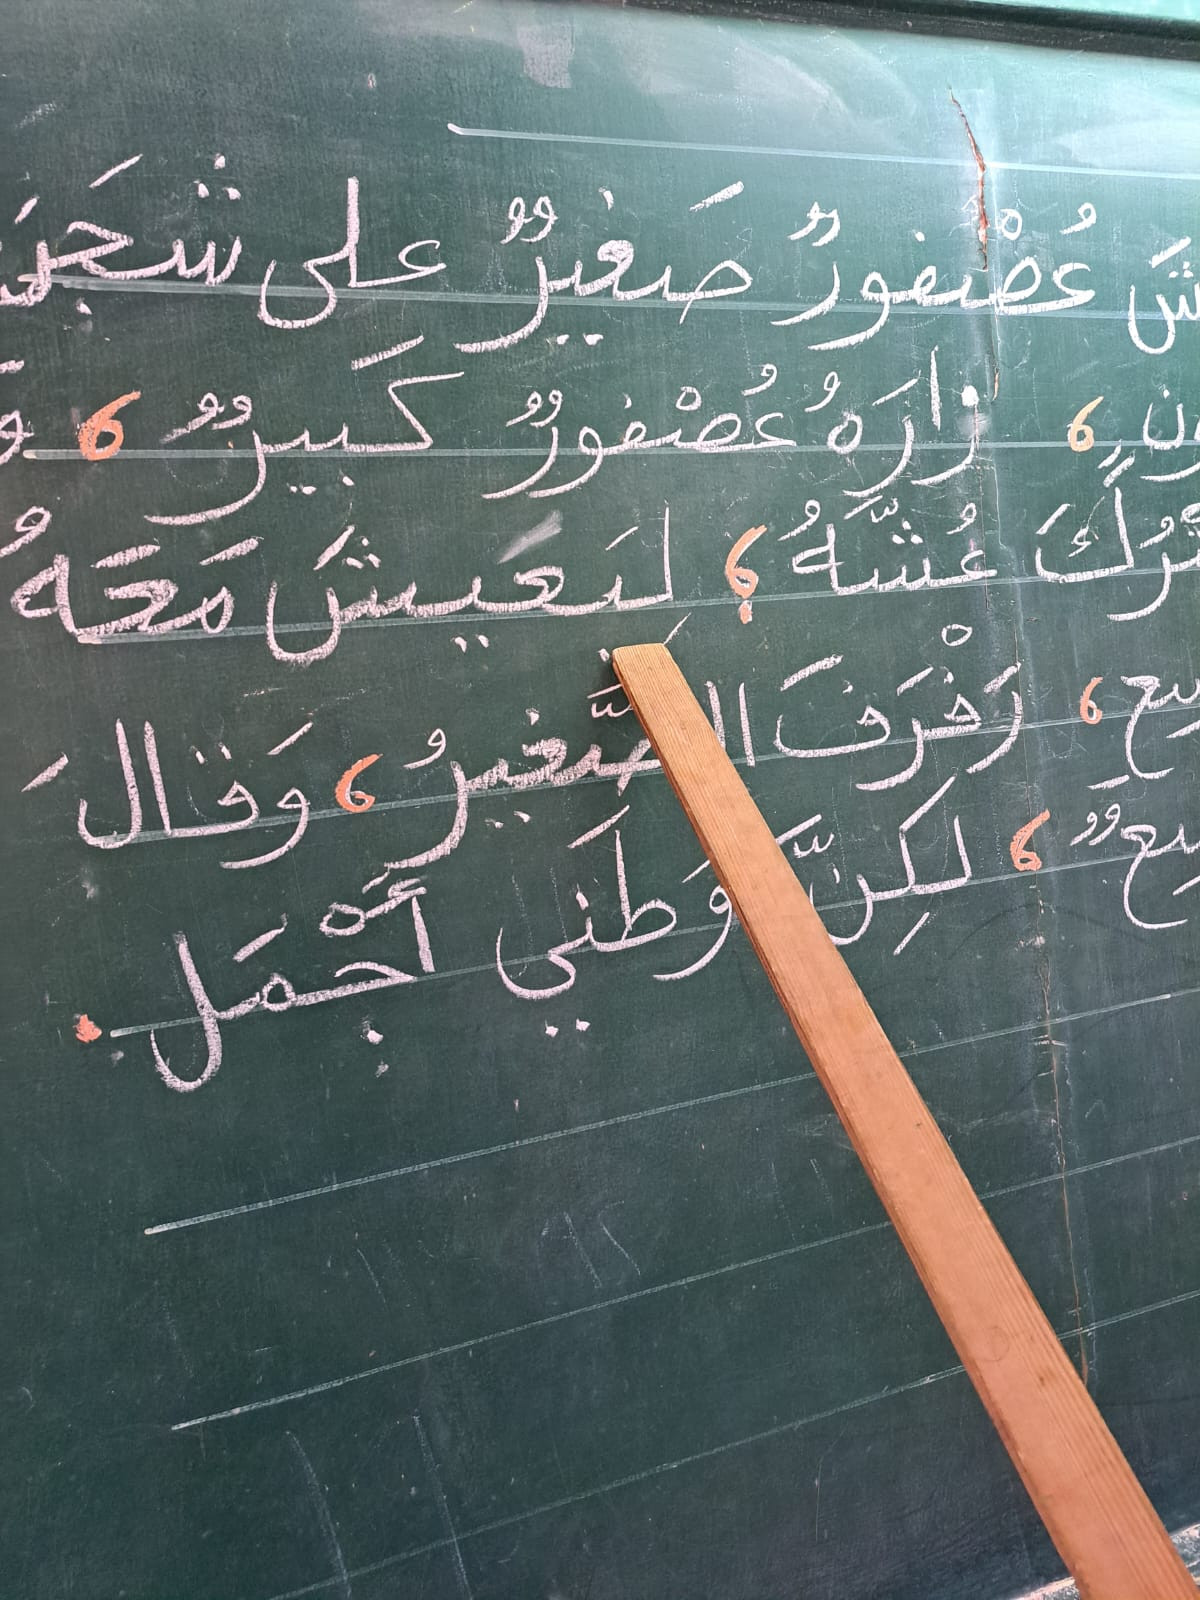 عُصْفورٌ صَغيرٌ على شَجَرَ
، زارَهُ عُصْفورٌ كَبيرٌ ،
عُشَّهُ ؛ لِيَعيشَ مَعَهُ
، رَفْرَفَ الصَّغيرُ ، وَقالَ
، لكِنَّ وَطَني أَجْمَل .